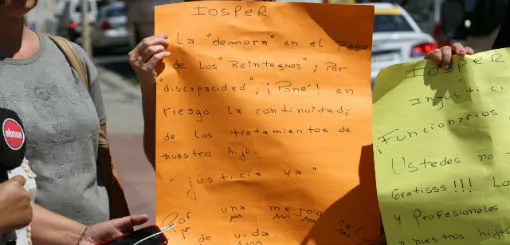 IOSPER
La "demora" en el pago
de los "Reintegros"; por
discapacidad", ¡Pone! en
riesgo la continuidad;
de los tratamientos de
nuestro hijo.
"justicia ya"
Por una mejor
de vida.
IOSPER
Injustici
¡Funcionarios
Ustedes no
Gratisss!!! Lo
y Profesionales
elonce